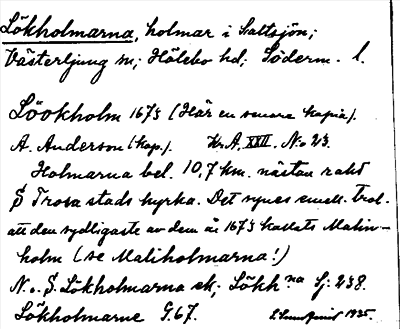 Lökholmarna, holmar i Saltsjön;
Västerljung sn; Hölebo hd; Söderm. l.
Löökholm 1673 (Här en senare kopia).
A. Anderson (kop.). Kr. A. XXII. No 23.
Holmarna bel. 10,7 km. nästan rakt
S Trosa stads kyrka. Det synes emell. trol.
att den sydligaste av dem är 1673 kallats Malin-
holm (se Maliholmarna!)
N. o. S. Lökholmarna ek; Lökh na Sj: 238.
Lökholmarne G. 67. 1935.